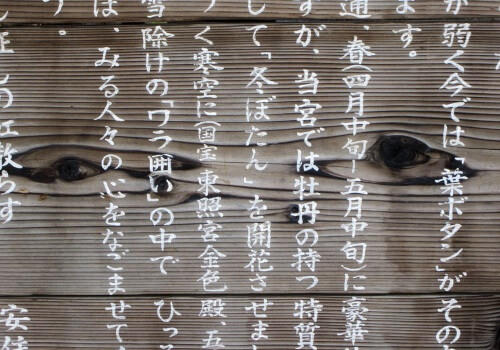 が弱く今では「葉ボタン」がその
ます。
通、春(四月中旬ー五月中旬)に豪華
すが、当宮では牡丹の持つ特質
して「冬ぼたん」を開花させま
く寒空に(国宝 東照宮金色殿、五
雪除けの「ワラ囲い」の中で ひっ
は、みる人々の心をなごませて
す。